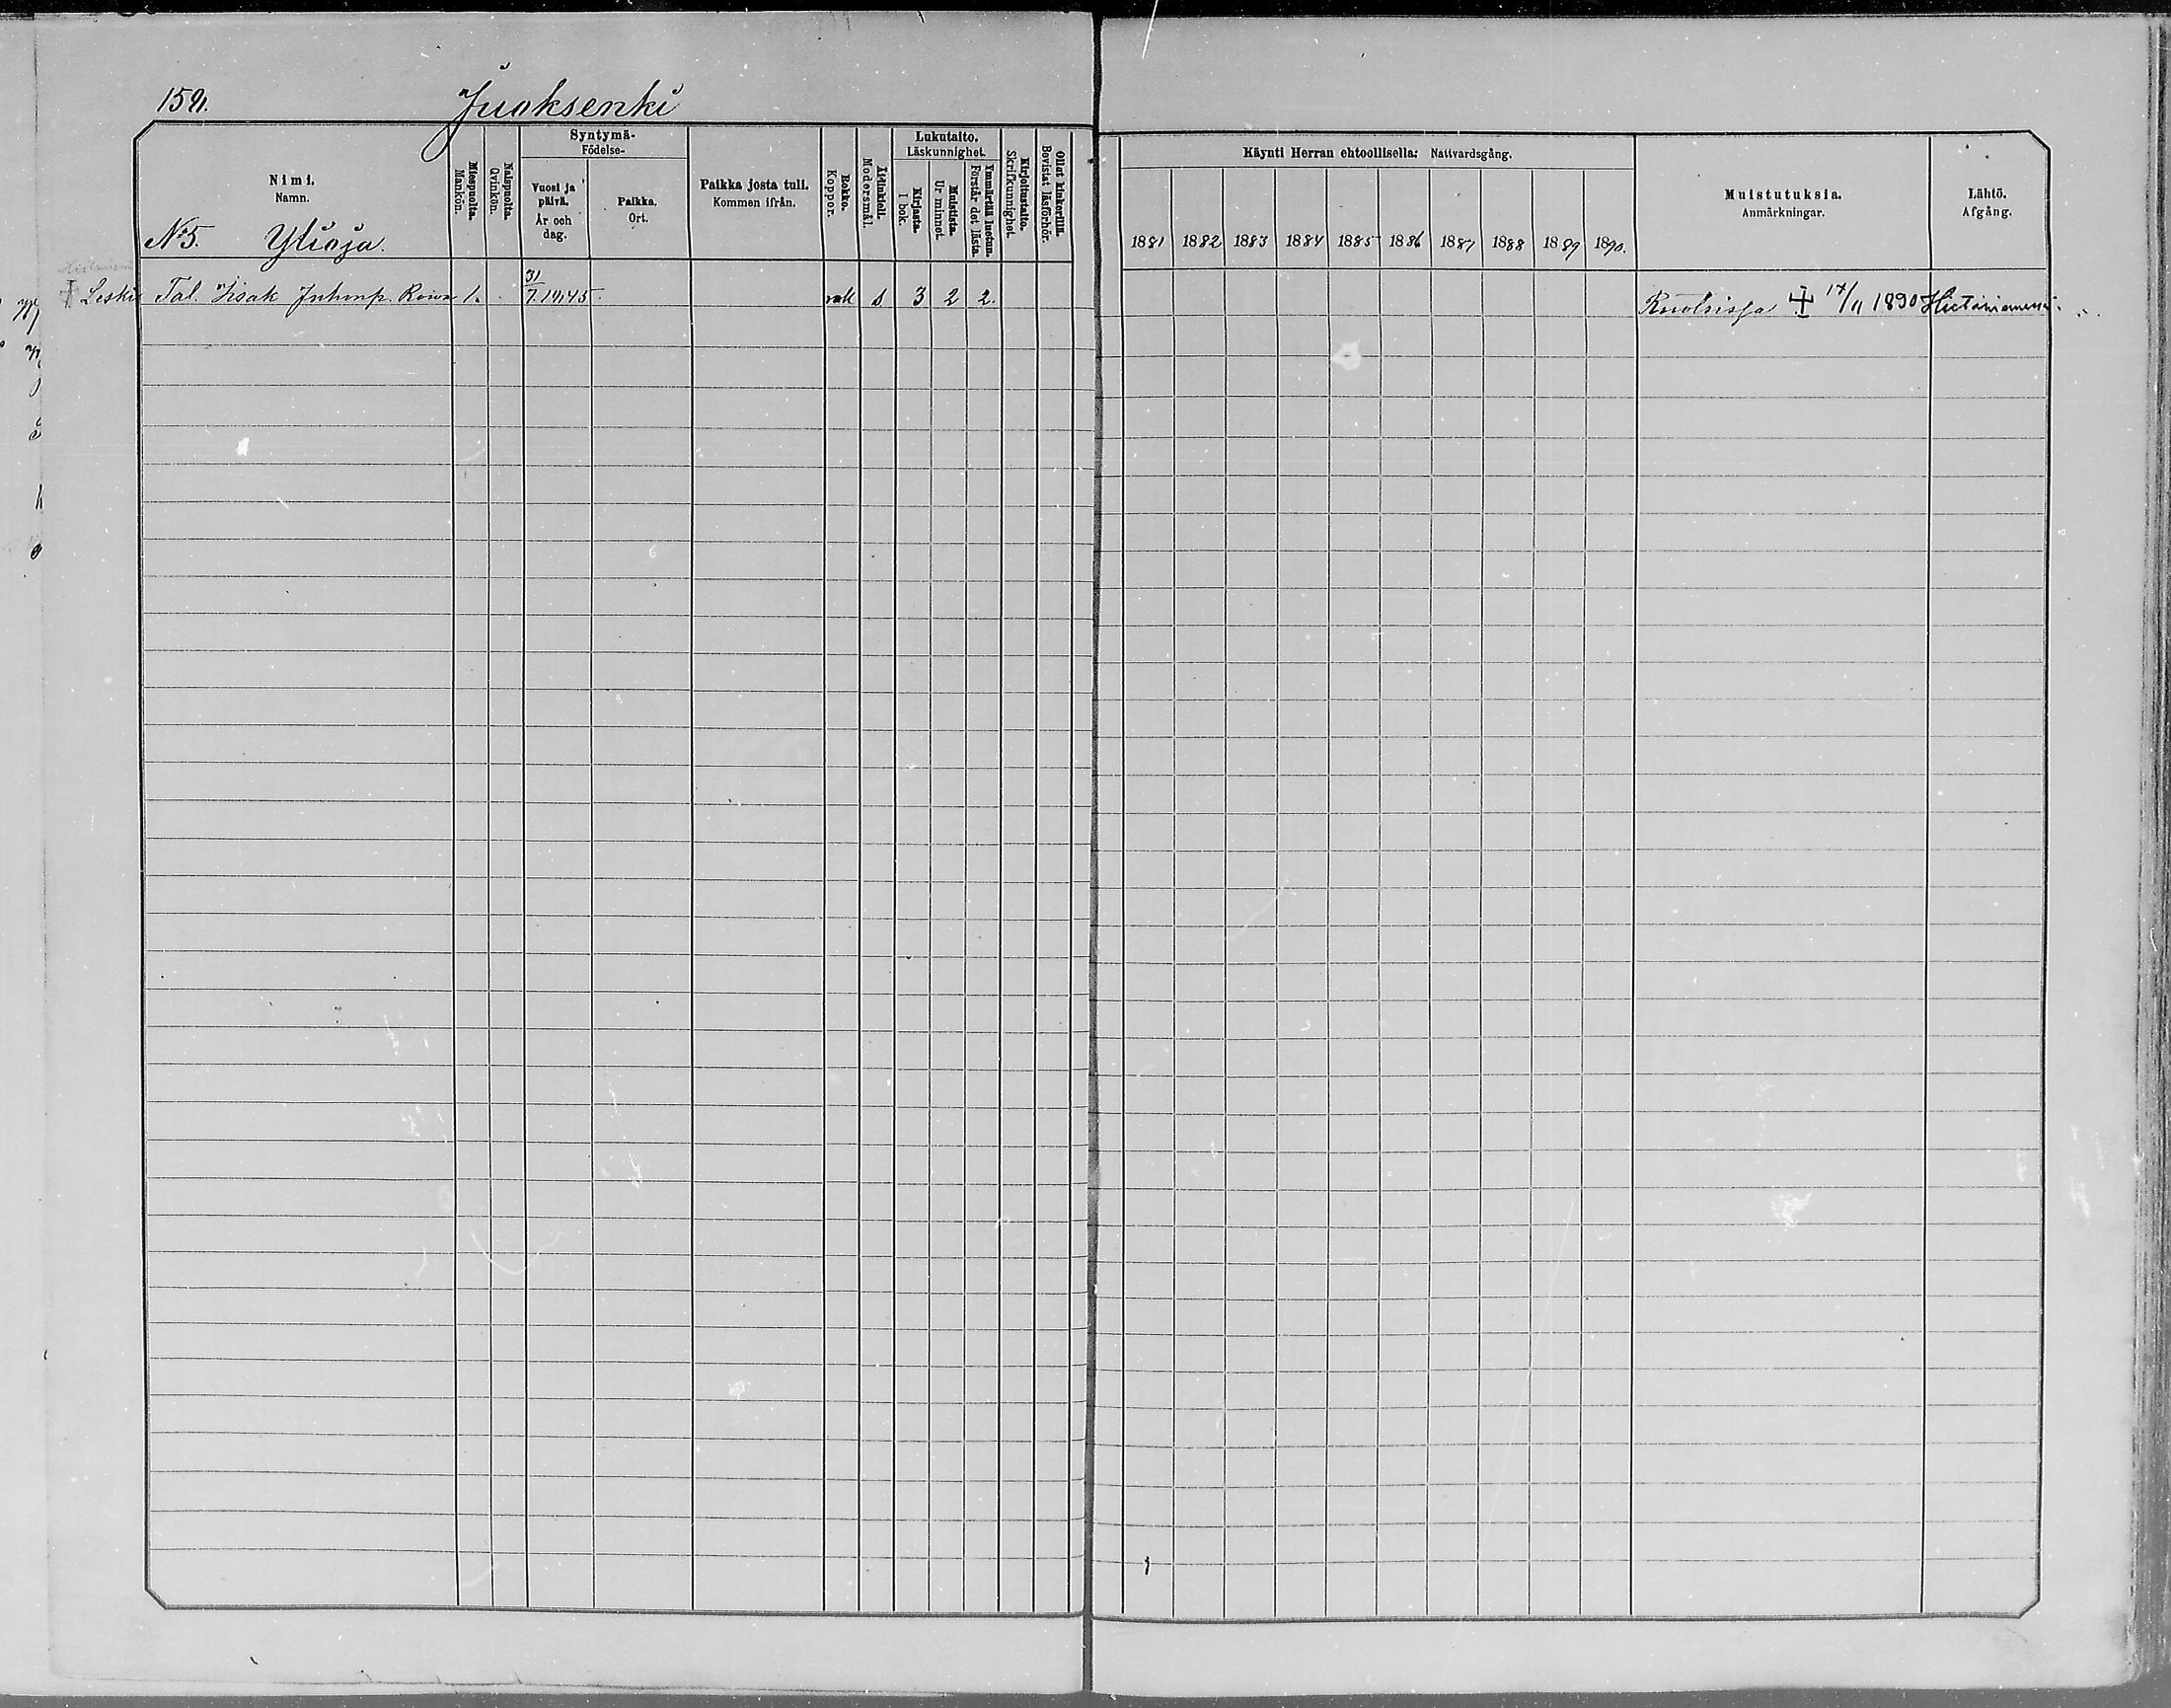 159. Juoksenki
Nimi.
Namn.
No 5. Ylioja.
Miespuolta.
Mankön.
Naispuolta.
Qvinkön.
Syntymä-
Födelse-
Vuosi ja päivä.
År och dag.
Paikka.
Ort.
Paikka josta tuli.
Kommen ifrån.
Rokko.
Koppor.
Äitinkieli.
Modersmål.
Lukutaito.
Läskunnighet.
Kirjasta.
I bok.
Muistista.
Ur minnet.
Ymmärtää luetun.
Förstår det lästa.
Kirjoitustaito.
Skrifkunnighet.
Ollut kinkerillä.
Bevistat läsförhör.
Käynti Herran ehtoollisella: Nattvardsgång.
1881 1882 1883 1884 1885 1886 1887 1888 1889 1890.
Muistutuksia.
Anmärkningar.
Lähtö.
Afgång.
Leski Tal. Isak 1. 31/7. s 3 2 2. Ruotsissa 17/11 1890